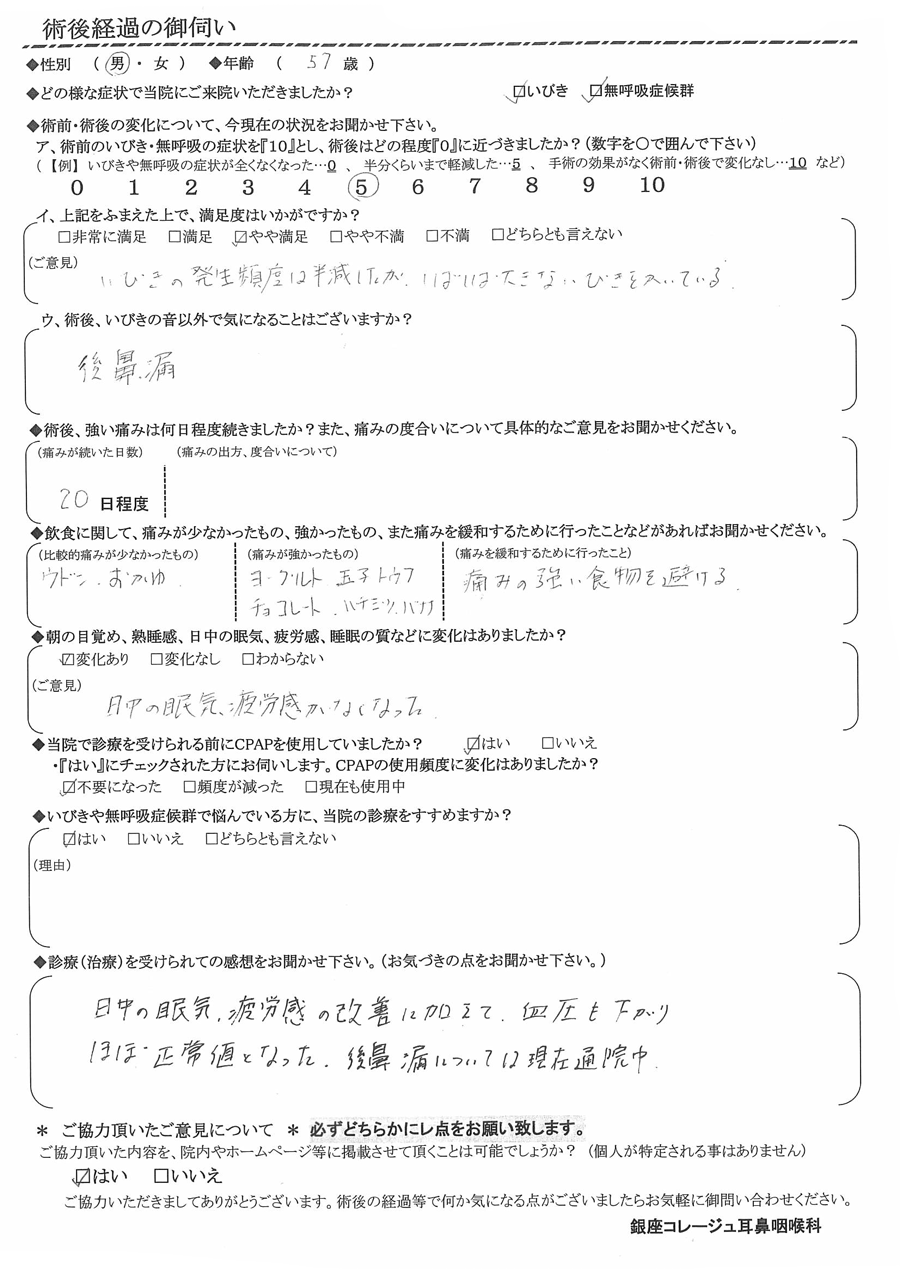 術後経過の御伺い
◆性別 （ 男 ・ 女 ） ◆年齢 （ 57 歳 ）
◆どの様な症状で当院にご来院いただきましたか？ ☑いびき ☑無呼吸症候群
◆術前・術後の変化について、今現在の状況をお聞かせ下さい。
ア、術前のいびき・無呼吸の症状を『10』とし、術後はどの程度『0』に近づきましたか？（数字を〇で囲んで下さい）
（ 【例】 いびきや無呼吸の症状が全くなくなった…0 、 半分くらいまで軽減した…5 、 手術の効果がなく術前・術後で変化なし…10 など）
0 1 2 3 4 5 6 7 8 9 10
イ、上記をふまえた上で、満足度はいかがですか？
□非常に満足 □満足 ☑やや満足 □やや不満 □不満 □どちらとも言えない
（ご意見）
いびきの発生頻度は半減したが、しばしば大きないびきをかいている。
ウ、術後、いびきの音以外で気になることはございますか？
後鼻漏
◆術後、強い痛みは何日程度続きましたか？また、痛みの度合いについて具体的なご意見をお聞かせください。
（痛みが続いた日数） （痛みの出方、度合いについて）
20 日程度
◆飲食に関して、痛みが少なかったもの、強かったもの、また痛みを緩和するために行ったことなどがあればお聞かせください。
（比較的痛みが少なかったもの） （痛みが強かったもの） （痛みを緩和するために行ったこと）
ウドン、おかゆ ヨーグルト 玉子トウフ 痛みの強い食物を避ける。
チョコレート、ハチミツ、バナナ
◆朝の目覚め、熟睡感、日中の眠気、疲労感、睡眠の質などに変化はありましたか？
☑変化あり □変化なし □わからない
（ご意見）
日中の眠気、疲労感がなくなった。
◆当院で診療を受けられる前にCPAPを使用していましたか？ ☑はい □いいえ
・『はい』にチェックされた方にお伺いします。CPAPの使用頻度に変化はありましたか？
☑不要になった □頻度が減った □現在も使用中
◆いびきや無呼吸症候群で悩んでいる方に、当院の診療をすすめますか？
☑はい □いいえ □どちらとも言えない
（理由）
◆診療（治療）を受けられての感想をお聞かせ下さい。（お気づきの点をお聞かせ下さい。）
日中の眠気、疲労感の改善に加えて、血圧も下がり
ほぼ正常値となった。後鼻漏については現在通院中。
＊ ご協力頂いたご意見について ＊ 必ずどちらかにレ点をお願い致します。
ご協力頂いた内容を、院内やホームページ等に掲載させて頂くことは可能でしょうか？ （個人が特定される事はありません）
☑はい □いいえ
ご協力いただきましてありがとうございます。術後の経過等で何か気になる点がございましたらお気軽に御問い合わせください。
銀座コレージュ耳鼻咽喉科